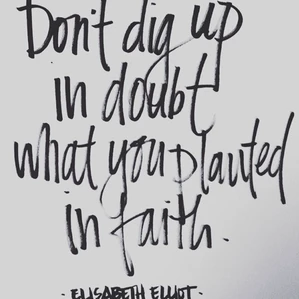 Don't dig up
in doubt
what you planted
in faith.
- ELISABETH ELLIOT -